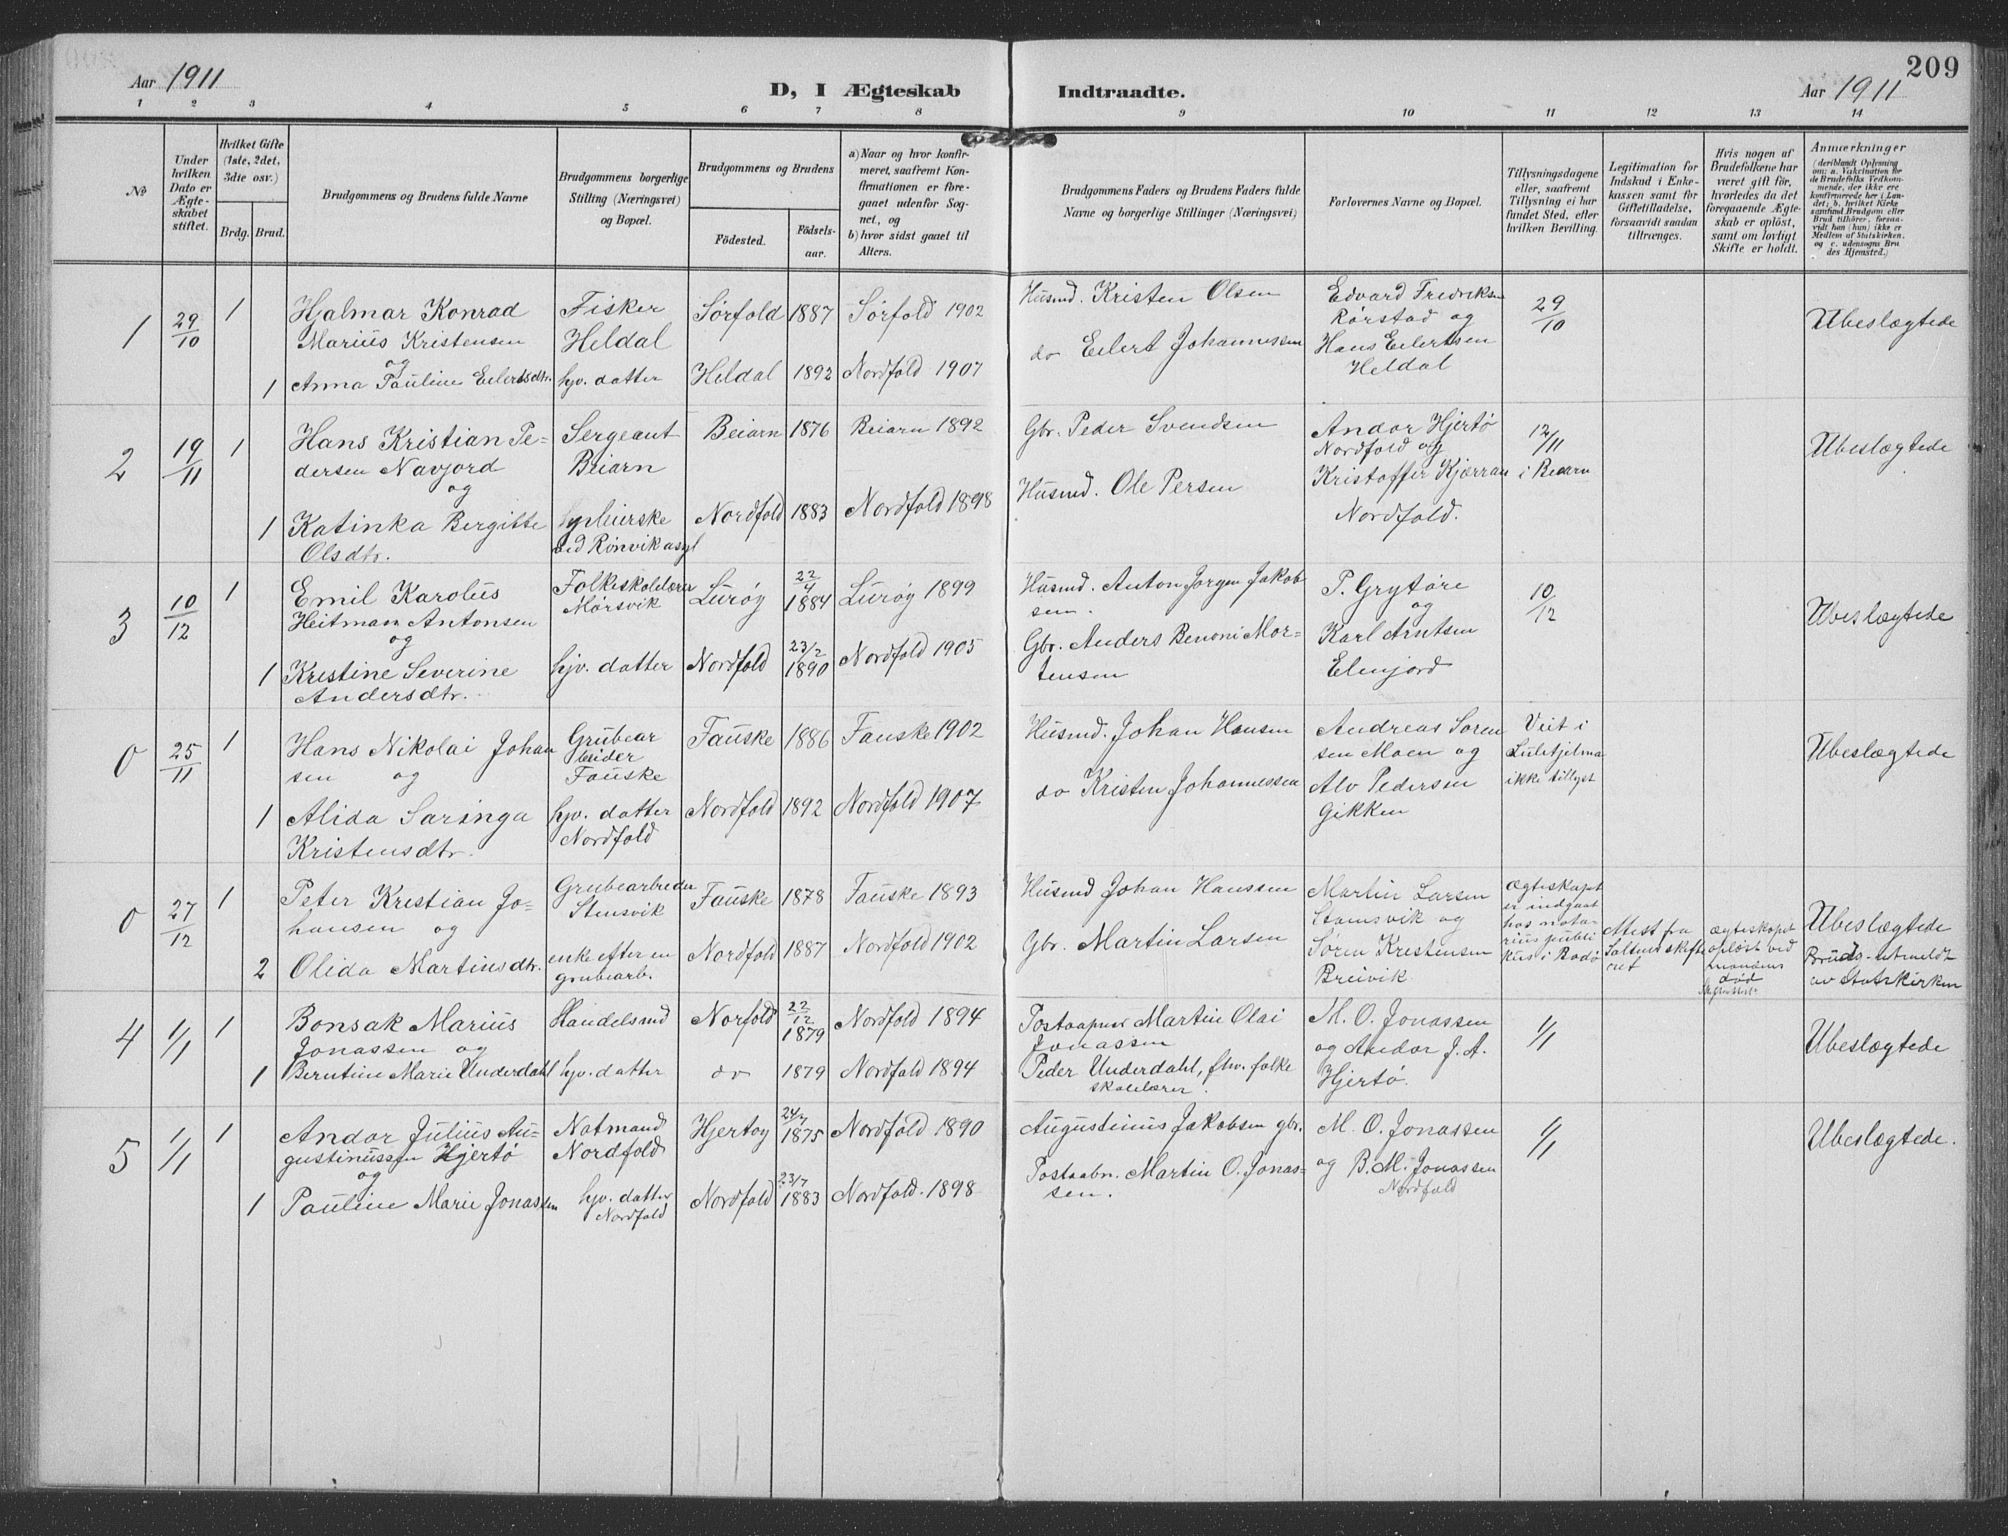 209
Aar 1911
D, I Ægteskab
Indtraadte.
Aar 1911
1 2 3 4 5 6 7 8 9 10 11 12 13 14
No
Under hvilken Dato er Ægteskabet stiftet.
Hvilket Gifte (1ste, 2det, 3die osv.)
Brdg. Brud.
Brudgommens og Brudens fulde Navne
Brudgommens borgerlige Stilling (Næringsvei) og Bopæl.
Brudgommens og Brudens
Födested.
Födselsaar.
a) Naar og hvor konfirmeret, saafremt Konfirmationen er foregaaet udenfor Sognet, og
b) hvor sidst gaaet til Alters.
Brudgommens Faders og Brudens Faders fulde Navne og borgerlige Stillinger (Næringsvei)
Forlovernes Navne og Bopæl.
Tillysningsdagene eller, saafremt Tillysning ei har fundet Sted, efter hvilken Bevilling.
Legitimation for Indskud i Enkekassen samt for Giftetilladelse, forsaavidt saadan tiltrænges.
Hvis nogen af Brudefolkene har været gift för, hvorledes da det foregaaende Ægteskab er oplöst, samt om lovligt Skifte er holdt.
Anmærkninger (deriblandt Oplysning om: a. Vakcination for de Brudefolks Vedkommende, der ikke ere konfirmerede her i Landet; b. hvilket Kirkesamfund Brudgom eller Brud tilhörer, forsaavidt han (hun) ikke er Medlem af Statskirken, og c. udensogns Brudes Hjemsted.)
1 29/10 1 Hjalmar Konrad Fisker Sörfold 1887 Sörfold 1902 Husmd. Kristen Olsen Edvard Fredriksen 29/10 Ubeslægtede
Marius Kristensen Heldal Rørstad og
og do Eilert Johannessen Hans Eilertsen
1 Anna Pauline Eilertsdtr. hjv. datter Heldal 1892 Nordfold 1907 Heldal
2 19/11 1 Hans Kristian Pe- Sergeant Beiarn 1876 Beiarn 1892 Gbr. Peder Svendsen Andor Hjertö 12/11 Ubeslægtede
dersen Navjord Beiarn Nordfold og
og Husmd. Ole Persen Kristoffer Kjærran i Beiarn
1 Katinka Bergitte Nordfold 1883 Nordfold 1898 Nordfold.
Olsdtr. ved Rønvik asyl
3 10/12 1 Emil Karolus Folkeskolelærer Lurøy 22/4 1884 Lurøy 1899 Husmd. Anton Jørgen Jakob P. Grytöre 10/12 Ubeslægtede
Heitman Antonsen Mørsvik sen. og
og Gbr. Anders Benoni Mor- Karl Arntsen
1 Kristine Severine hjv. datter Nordfold 23/2 1890 Nordfold 1905 tensen Elvejord
Andersdtr.
0 25/11 1 Hans Nikolai Johan Grubear Fauske 1886 Fauske 1902 Husmd. Johan Hansen Andreas Soren Viet i Ubeslægtede
sen og beider sen Moen og
Fauske do Kristen Johannessen Alv Pedersen ikke tillyst
1 Alida Saringa hjv. datter Nordfold 1892 Nordfold 1907 Gikken
Kristensdtr. Nordfold
0 27/12 1 Peter Kristian Jo- Grubearbeider Fauske 1878 Fauske 1893 Husmd Johan Hanssen Martin Larsen ægteskapet Ubeslægtede
hansen og Stensvik Stamsvik og er indgaat hos notarius publikus i Bodö Attest fra Saltens skifteret ægteskapet opløst ved mandens död
2 Olida Martinsdtr. enke efter en Nordfold 1887 Nordfold 1902 Gbr. Martin Larsen Søren Kristensen Bruds utmeldt
grubearb. Breivik av Statskirken
4 1/1 1 Bonsak Marius Handelsmd Norfold 22/12 1879 Nordfold 1894 Postaapner Martin Olai M. O. Jonassen 1/1 Ubeslægtede
Jonassen og Jonassen og Andor J. A.
1 Berntine Marie Underdahl hjv. datter do 1879 Nordfold 1894 Peder Underdahl, fhv. folke Hjertö.
skolelærer.
5 1/1 1 Andor Julius Au- Notmand Hjertøy 24/7 1875 Nordfold 1890 Augustinus Jakobsen gbr. M. O. Jonassen 1/1 Ubeslægtede.
gustinussen Hjertö Nordfold og B. M. Jonassen
og Postaabn. Martin O. Jonas- Nordfold
1 Pauline Marie Jonassen hjv. datter Nordfold 23/7 1883 Nordfold. 1898 sen.
Nordfold